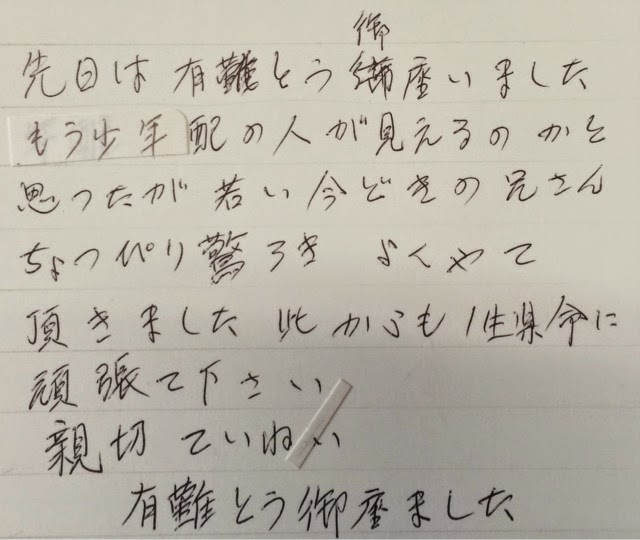 御
先日は有難とう御座いました
もう少年配の人が見えるのかと
思ったが若い今どきの兄さん
ちょっぴり驚ろき よくやて
頂きました 此からも1生県命に
頑張て下さい
親切ていねい
有難とう御座ました